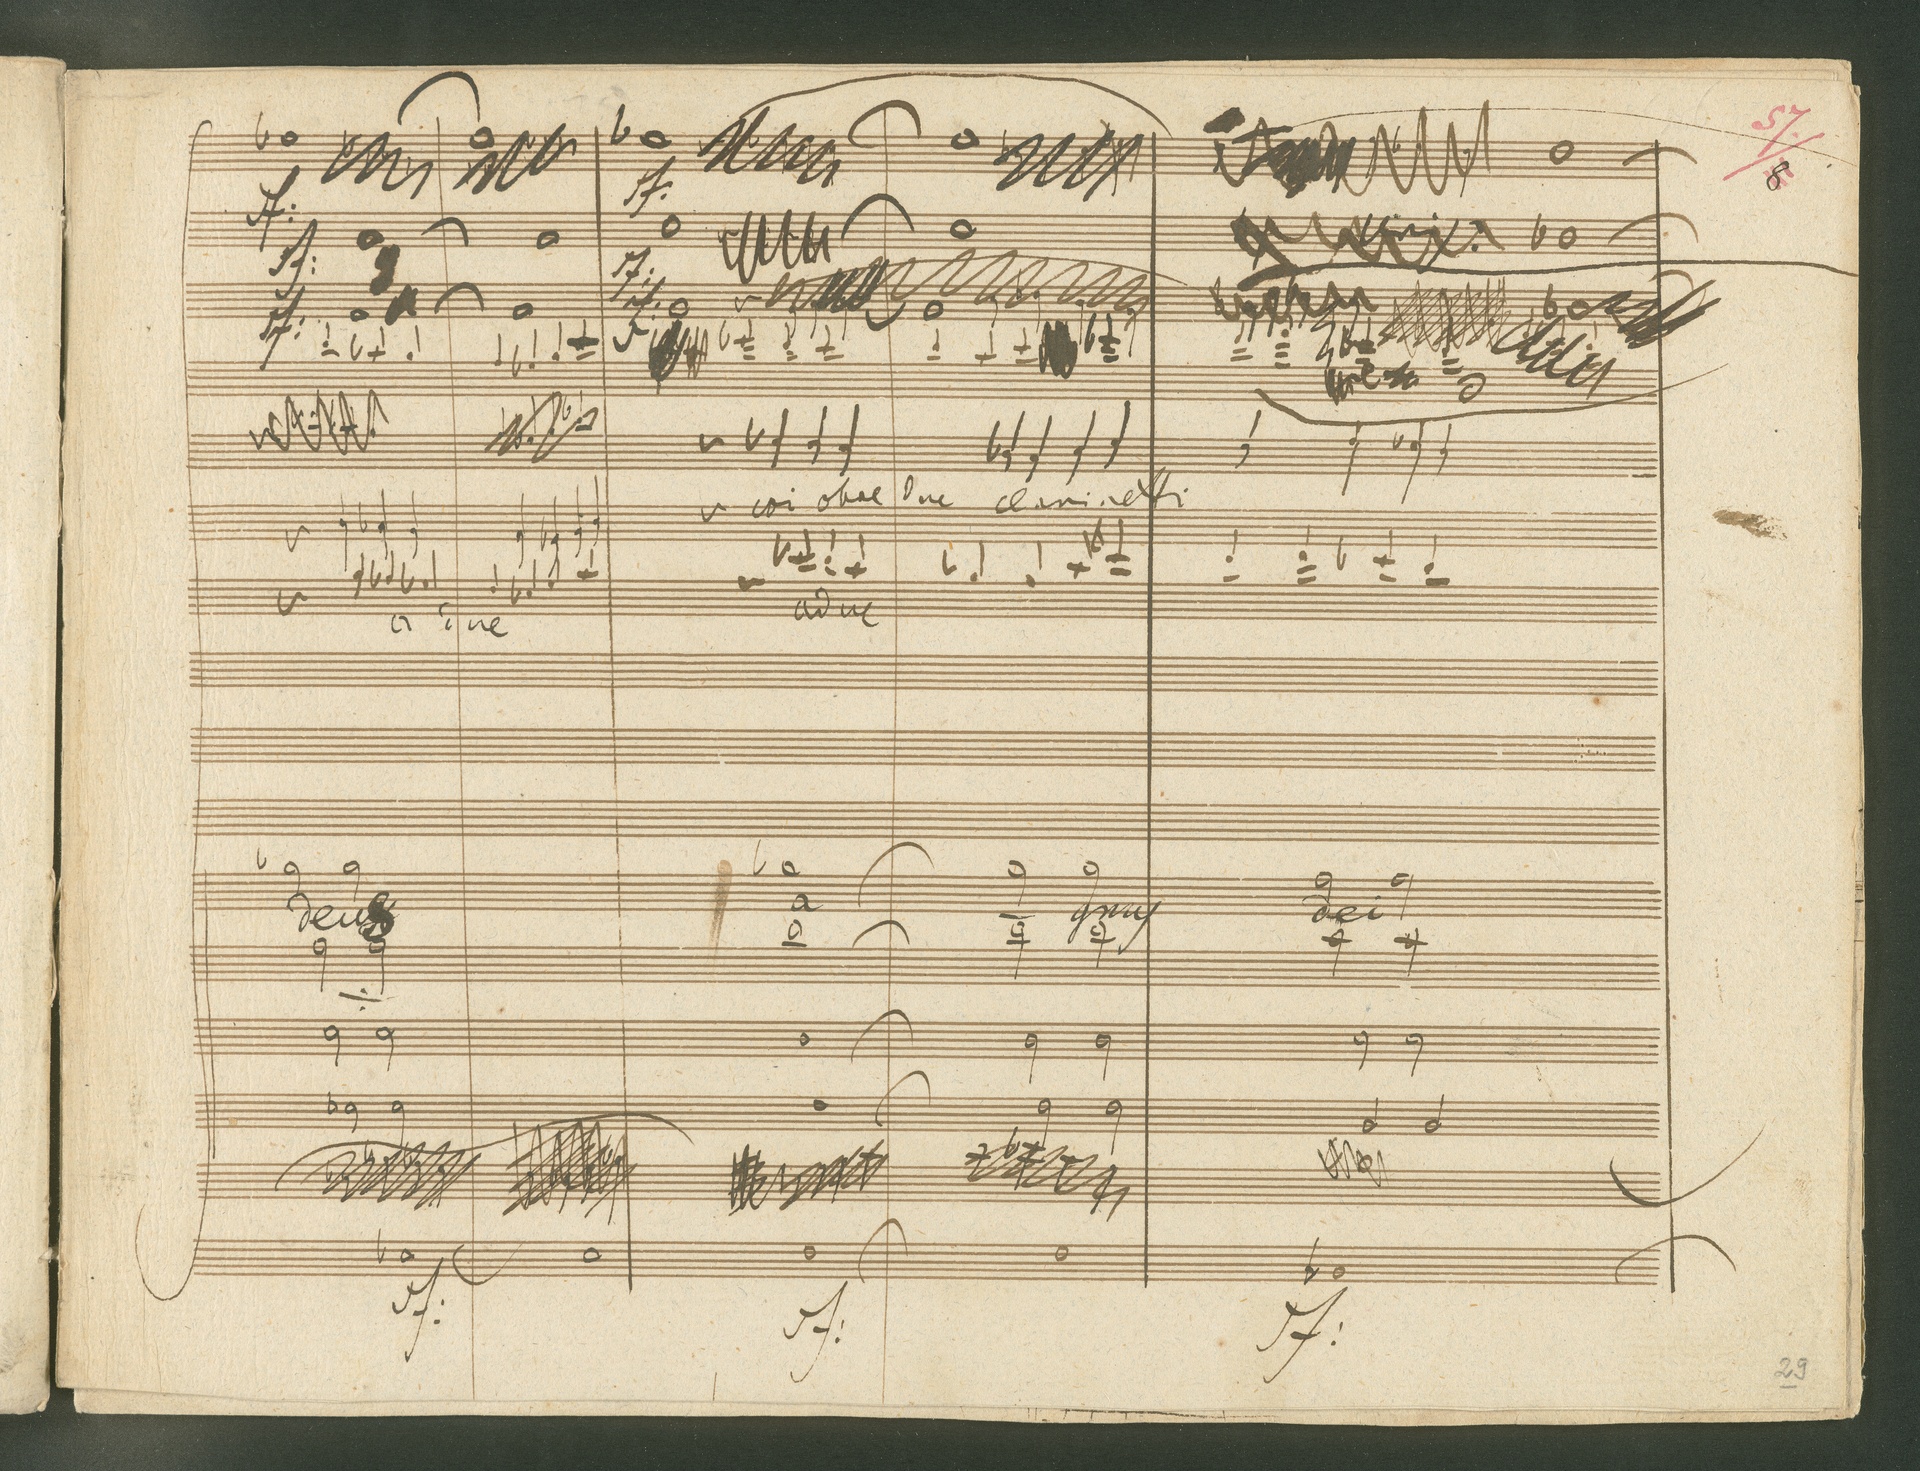 57.
8
sf:
sf:
sf:
sf:
sf:
coi oboe Due clarinetti
a due
a due
deus
a gnus dei
sf: sf: sf:
29